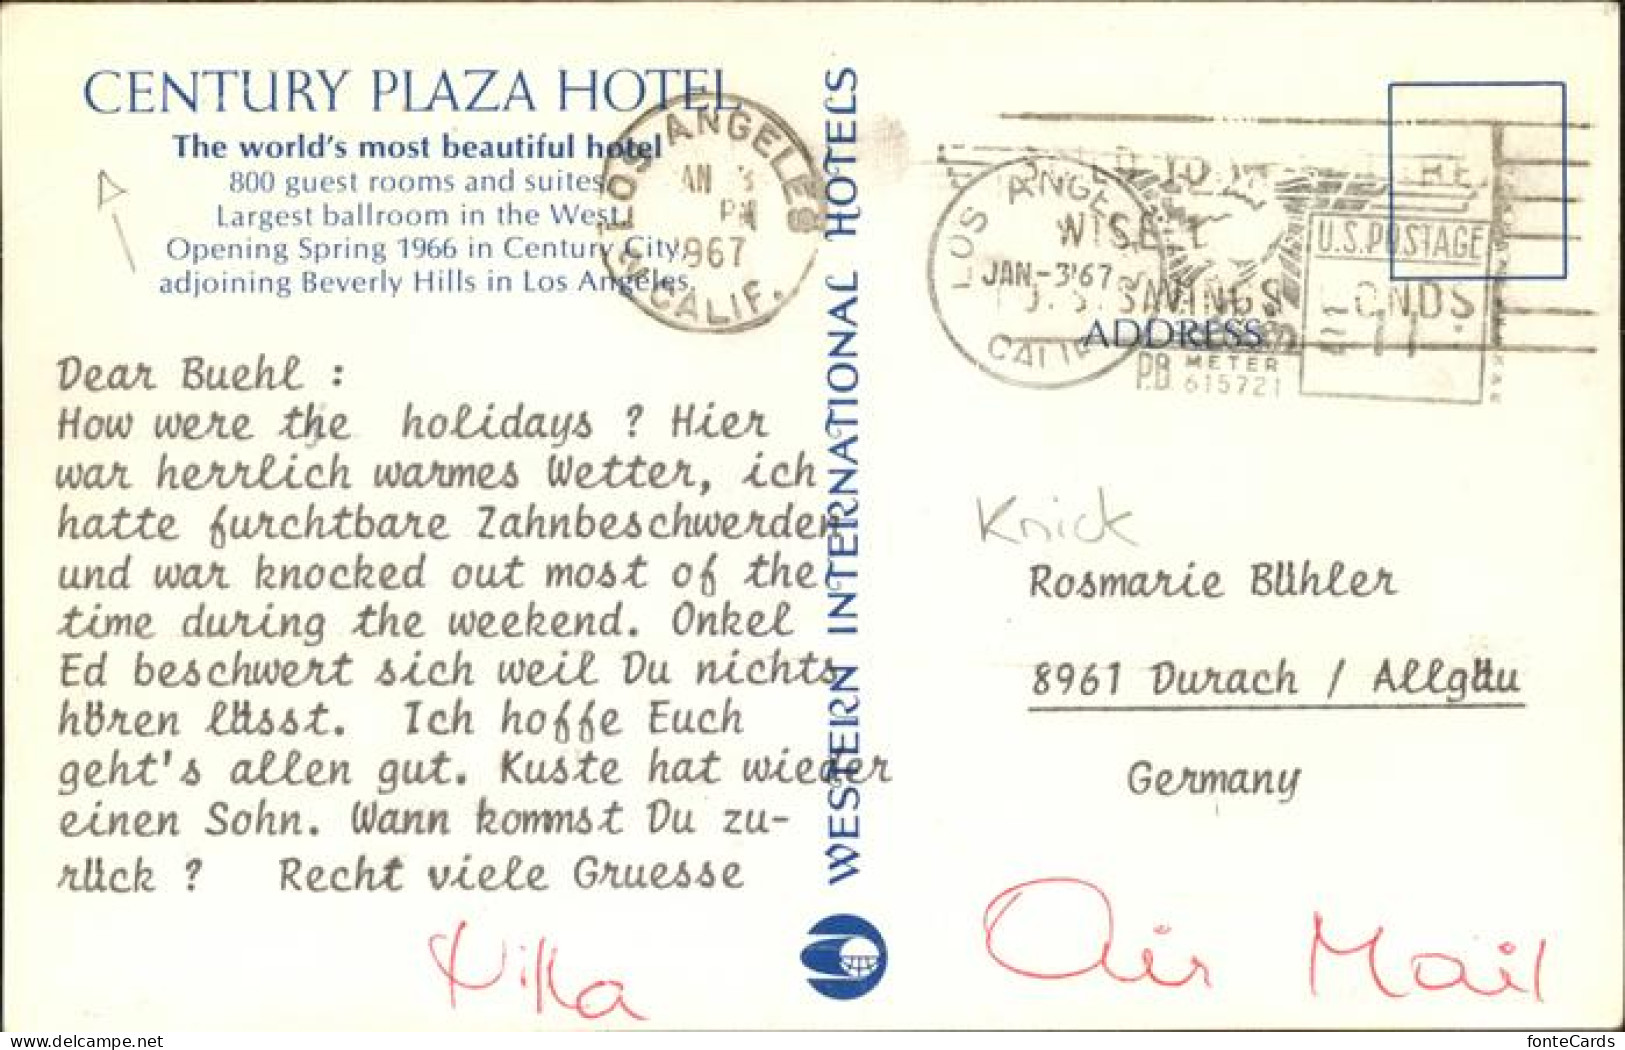 CENTURY PLAZA HOTEL
The world's most beautiful hotel
800 guest rooms and suites.
Largest ballroom in the West.
Opening Spring 1966 in Century City,
adjoining Beverly Hills in Los Angeles.
LOS ANGELES
PM
1967
CALIF.
Dear Buehl :
How were the holidays ? Hier
war herrlich warmes Wetter, ich
hatte furchtbare Zahnbeschwerden
und war knocked out most of the
time during the weekend. Onkel
Ed beschwert sich weil Du nichts
hören lässt. Ich hoffe Euch
geht's allen gut. Kuste hat wieder
einen Sohn. Wann kommst Du zu-
rück ? Recht viele Gruesse
WESTERN INTERNATIONAL HOTELS
LOS ANGELES
JAN-3'67
CALIF
U.S. SAVINGS
BONDS
U.S. POSTAGE
P.B. METER
615721
ADDRESS
Knick
Rosmarie Bühler
8961 Durach / Allgäu
Germany
Air Mail
delcampe.net
fonteCards